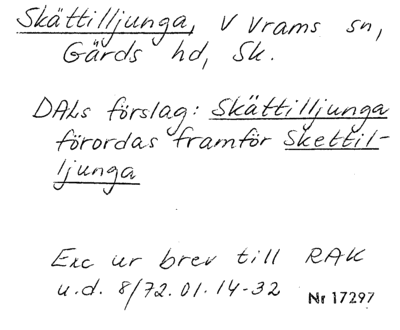 Skättilljunga, V Vrams sn,
Gärds hd, Sk.
DALs förslag: Skättilljunga
förordas framför Skettil-
ljunga
Exc ur brev till RAK
u.d. 8/72.01.14-32 Nr 17297